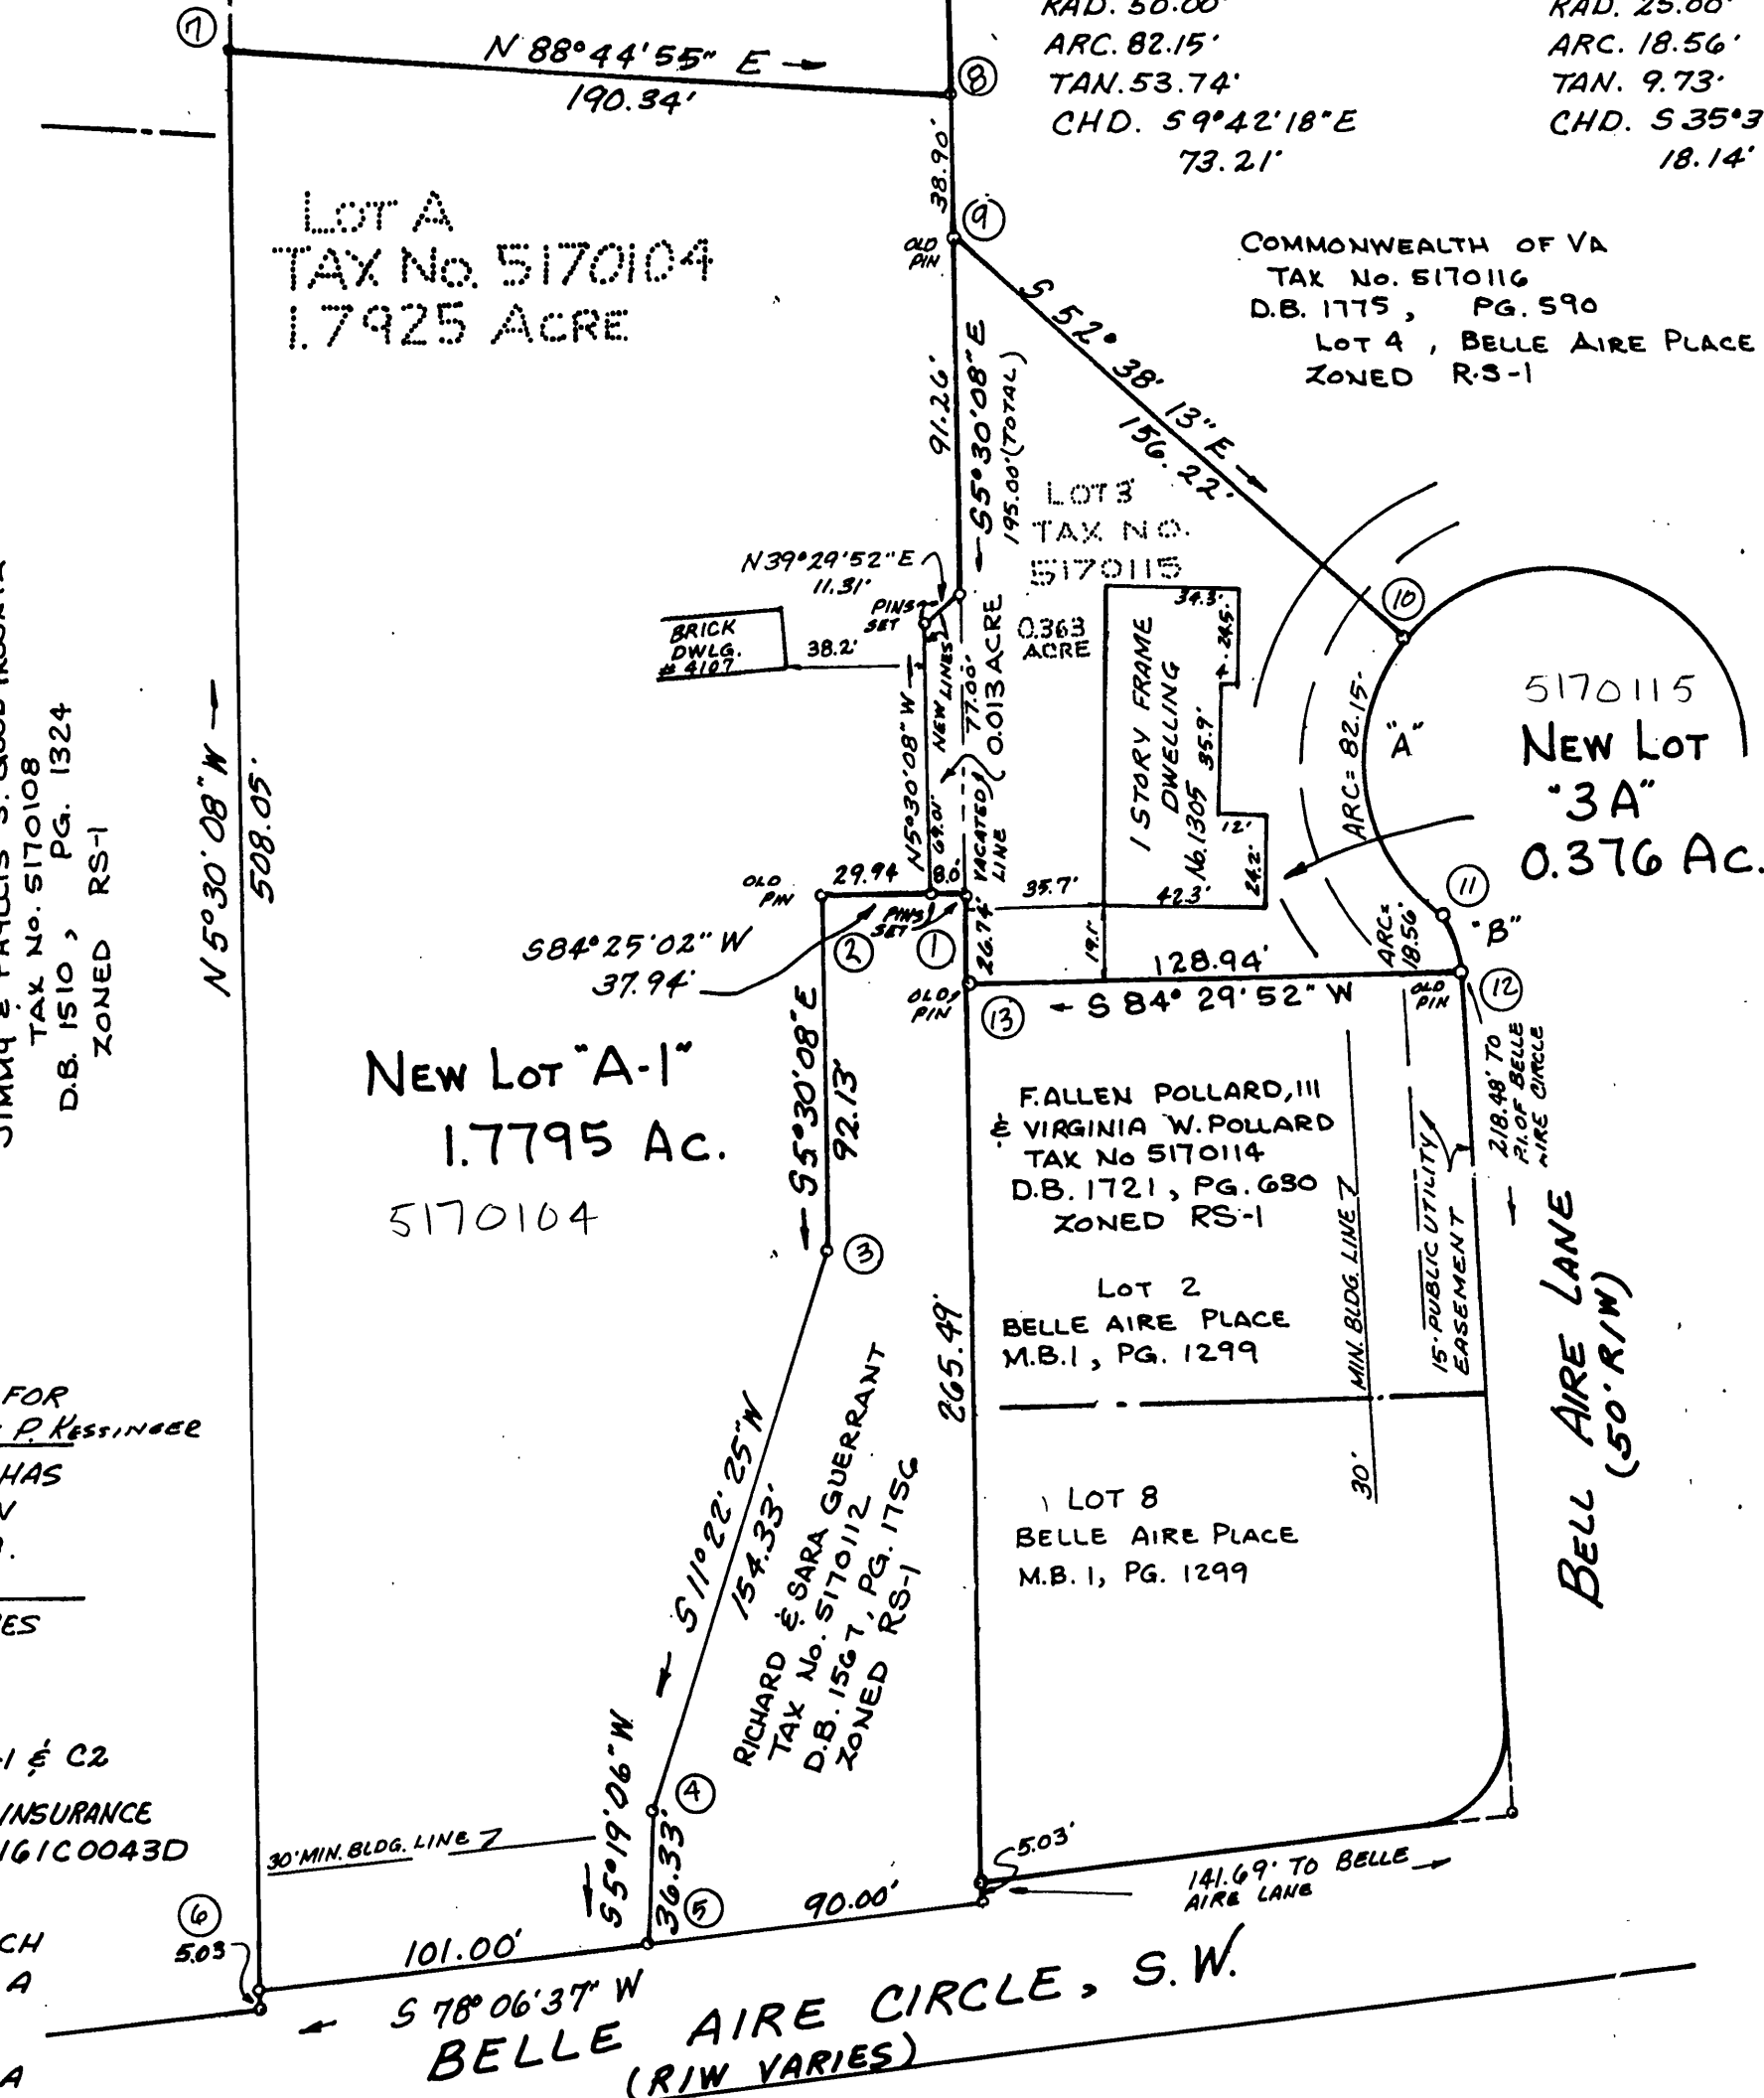 7
N 88° 44' 55" E
190.34'
8
38.90'
9
OLD
PIN
RAD. 50.00'
ARC. 82.15'
TAN. 53.74'
CHD. S 9° 42' 18" E
73.21'
RAD. 25.00'
ARC. 18.56'
TAN. 9.73'
CHD. S 35°3
18.14'
LOT A
TAX No. 5170104
1.7925 ACRE
COMMONWEALTH OF VA
TAX No. 5170116
D.B. 1775, PG. 590
LOT 4, BELLE AIRE PLACE
ZONED R.S-1
S 52° 38' 13" E
156.22'
91.26'
S5° 30' 08" E
195.00' (TOTAL)
LOT 3
TAX NO.
5170115
0.363
ACRE
N 39° 29' 52" E
11.31'
PINS
SET
BRICK
DWLG.
# 4107
38.2'
N5° 30' 08" W
69.01'
NEW LINES
77.00'
0.013 ACRE
VACATED
LINE
1 STORY FRAME
DWELLING
No. 1305
34.3'
24.5'
35.9'
12'
24.2'
42.3'
35.7'
19.1'
10
ARC= 82.15'
"A"
5170115
NEW LOT
"3A"
0.376 AC.
11
"B"
ARC=
18.56'
12
OLD
PIN
TAX No. 5170108
D.B. 1510, PG. 1324
ZONED RS-1
N 5° 30' 08" W
508.05'
OLD
PIN
29.94
8.0
PINS
SET
2
1
S84° 25' 02" W
37.94'
26.74'
OLD
PIN
13
128.94'
S 84° 29' 52" W
NEW LOT "A-1"
1.7795 AC.
5170104
S5° 30' 08" E
92.13'
3
F. ALLEN POLLARD, III
& VIRGINIA W. POLLARD
TAX No 5170114
D.B. 1721, PG. 630
ZONED RS-1
LOT 2
BELLE AIRE PLACE
M.B. 1, PG. 1299
265.49'
MIN. BLDG. LINE
30'
15' PUBLIC UTILITY
EASEMENT
218.48' TO
P.I. OF BELLE
AIRE CIRCLE
BELL AIRE LANE
(50' R/W)
LOT 8
BELLE AIRE PLACE
M.B. 1, PG. 1299
S 11° 22' 25" W
154.33'
RICHARD & SARA GUERRANT
TAX No. 5170112
D.B. 1567, PG. 1756
ZONED RS-1
FOR
P. KESSINGER
HAS
ES
1 & C2
INSURANCE
161C0043D
CH
A
A
4
S 5° 19' 06" W
36.33'
5
30' MIN. BLDG. LINE
6
5.03
101.00'
90.00'
5.03'
141.69' TO BELLE
AIRE LANE
S 78° 06' 37" W
BELLE AIRE CIRCLE, S.W.
(R/W VARIES)